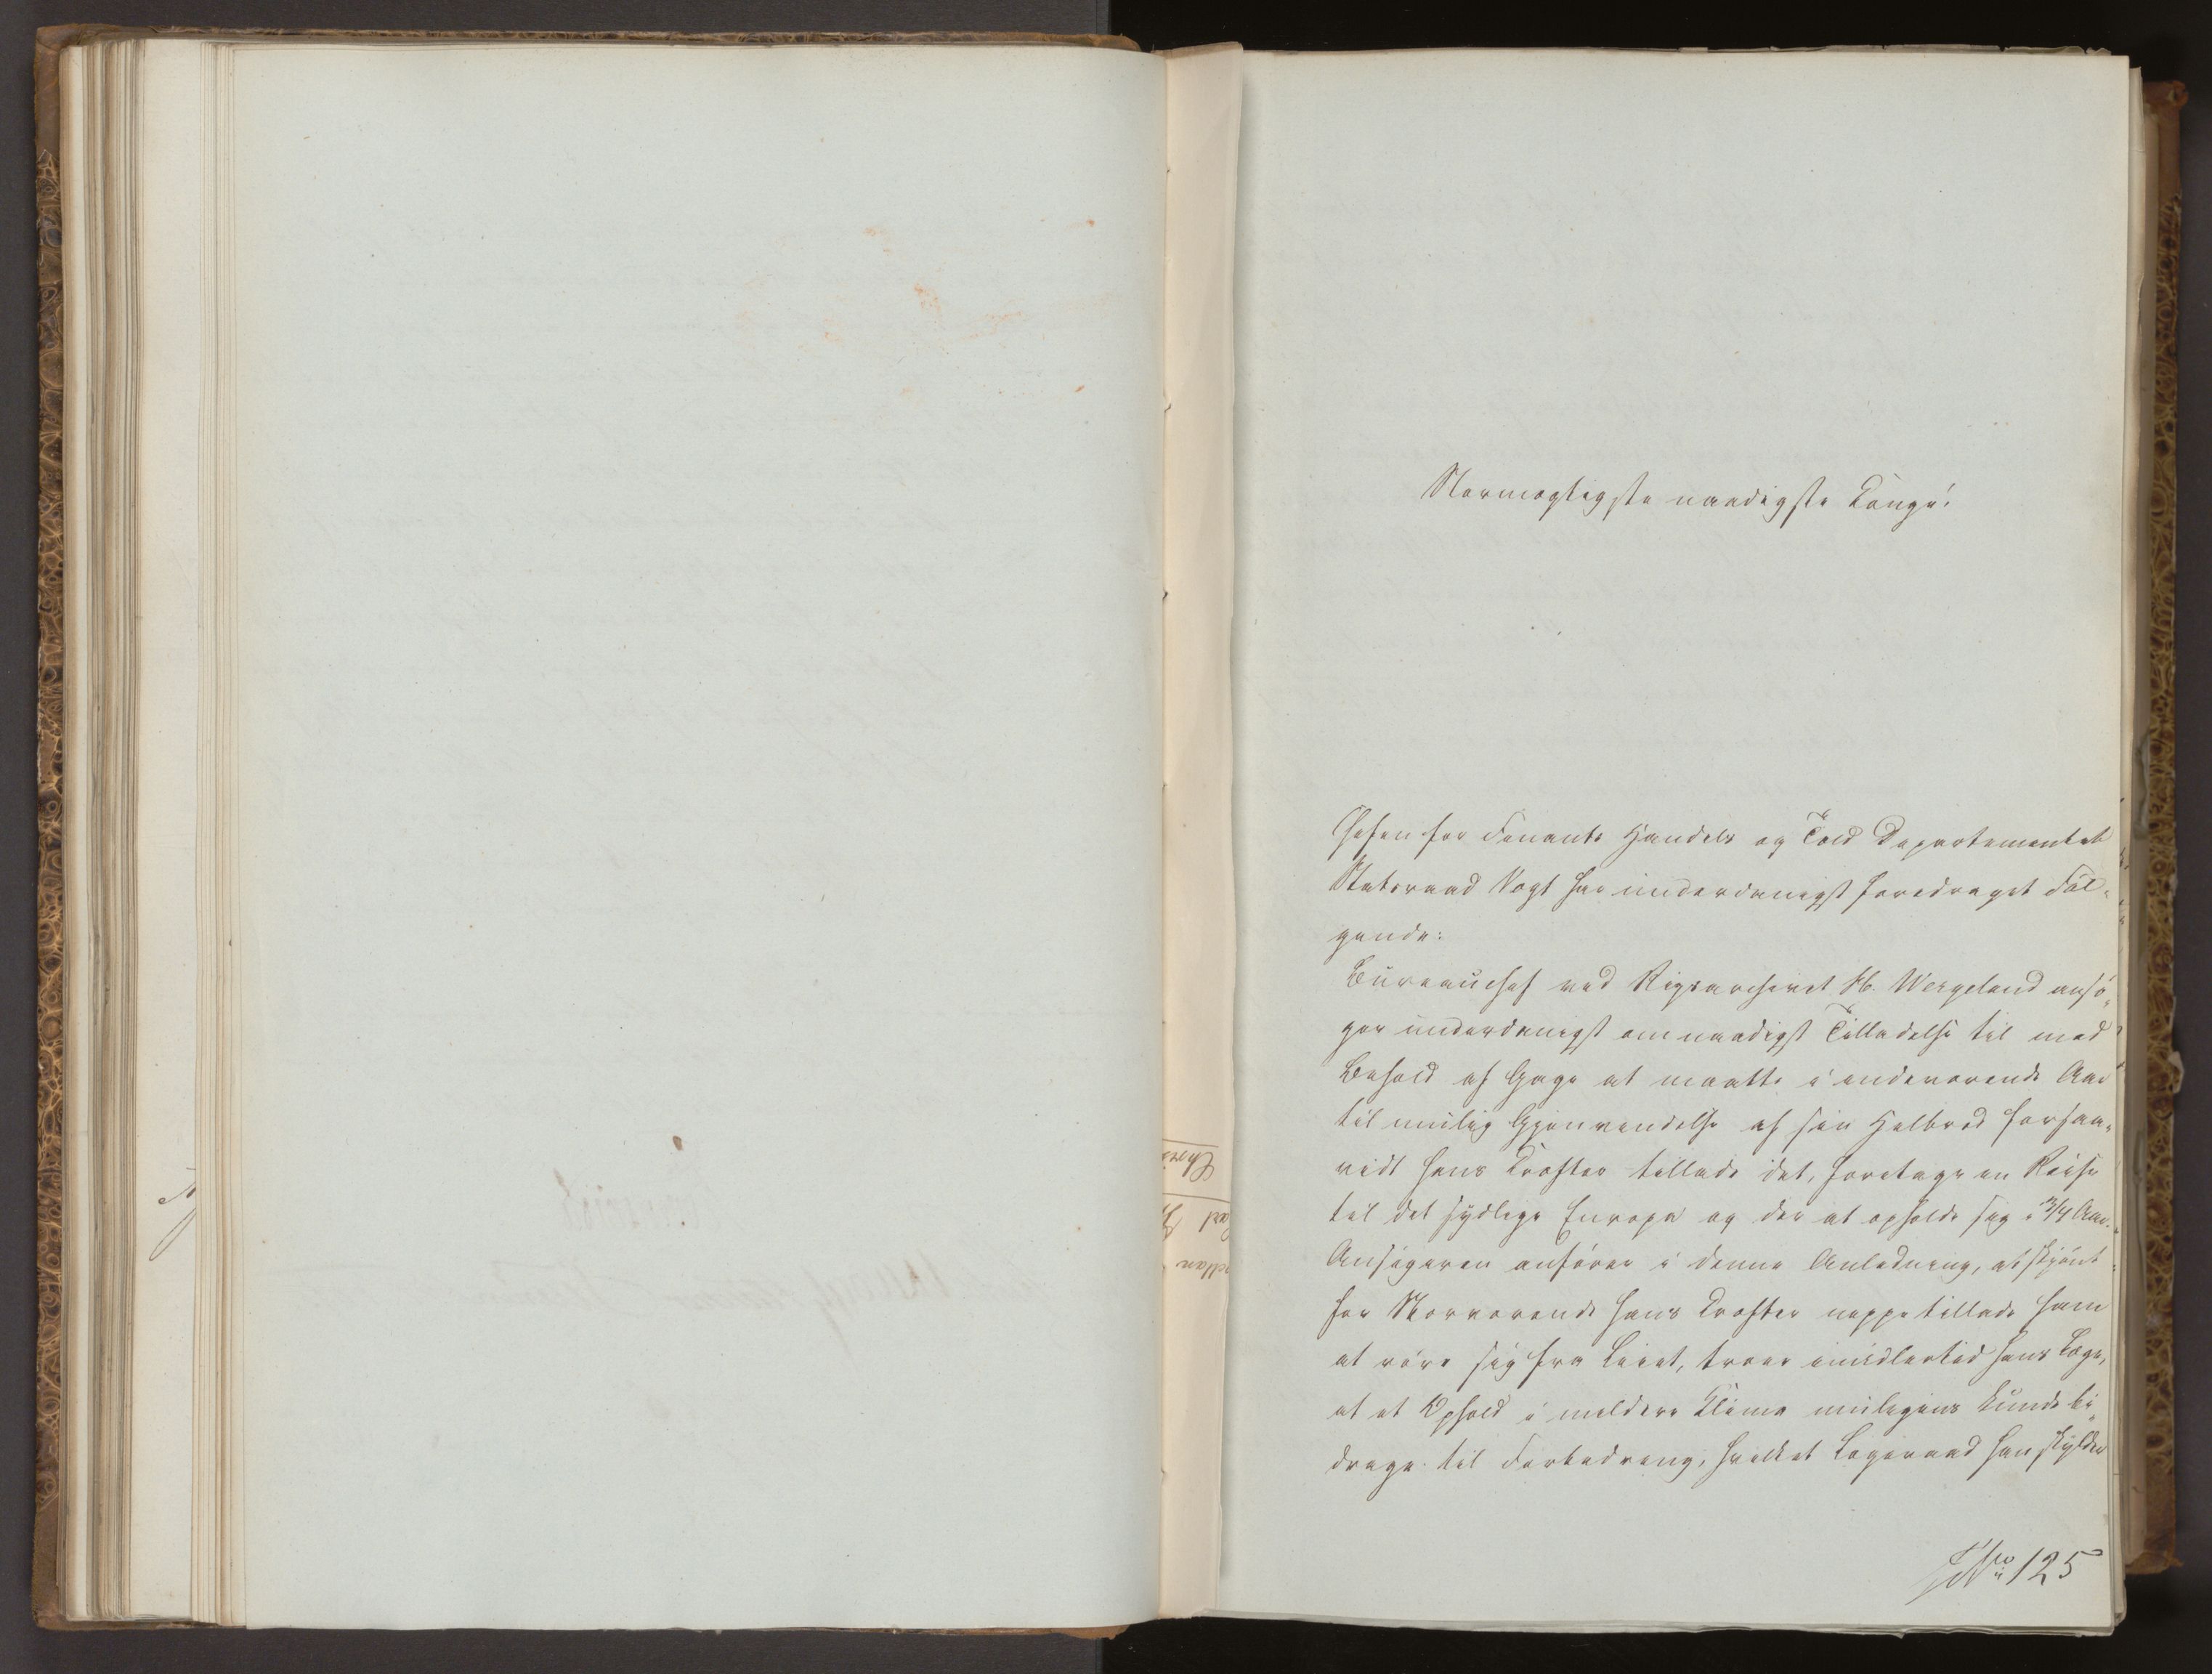 Stormægtigste naadigste Konge!
Chefen for Finants Handels og Told Departementet
Statsraad Vogt har underdanigst foredraget Føl-
gende:
Bureauchef ved Rigsarchivet H. Wergeland ansø-
ger underdanigst om naadigst Tilladelse til med
Behold af Gage at maatte i indeværende Aar
til mulig Gjenvindelse af sin Helbred forsaa-
vidt hans Kræfter tillade det, foretage en Reise
til det sydlige Europa og der at opholde sig i 3/4 Aar.
Ansøgeren anfører i denne Anledning, at skjønt
for Nærværende hans Kræfter neppe tillade ham
at røre sig fra Leiet, troer imidlertid hans Læge,
at et Ophold i mildere Klima muligens kunde bi-
drage til Forbedring, hvilket Lægeraad han skylder
No 125